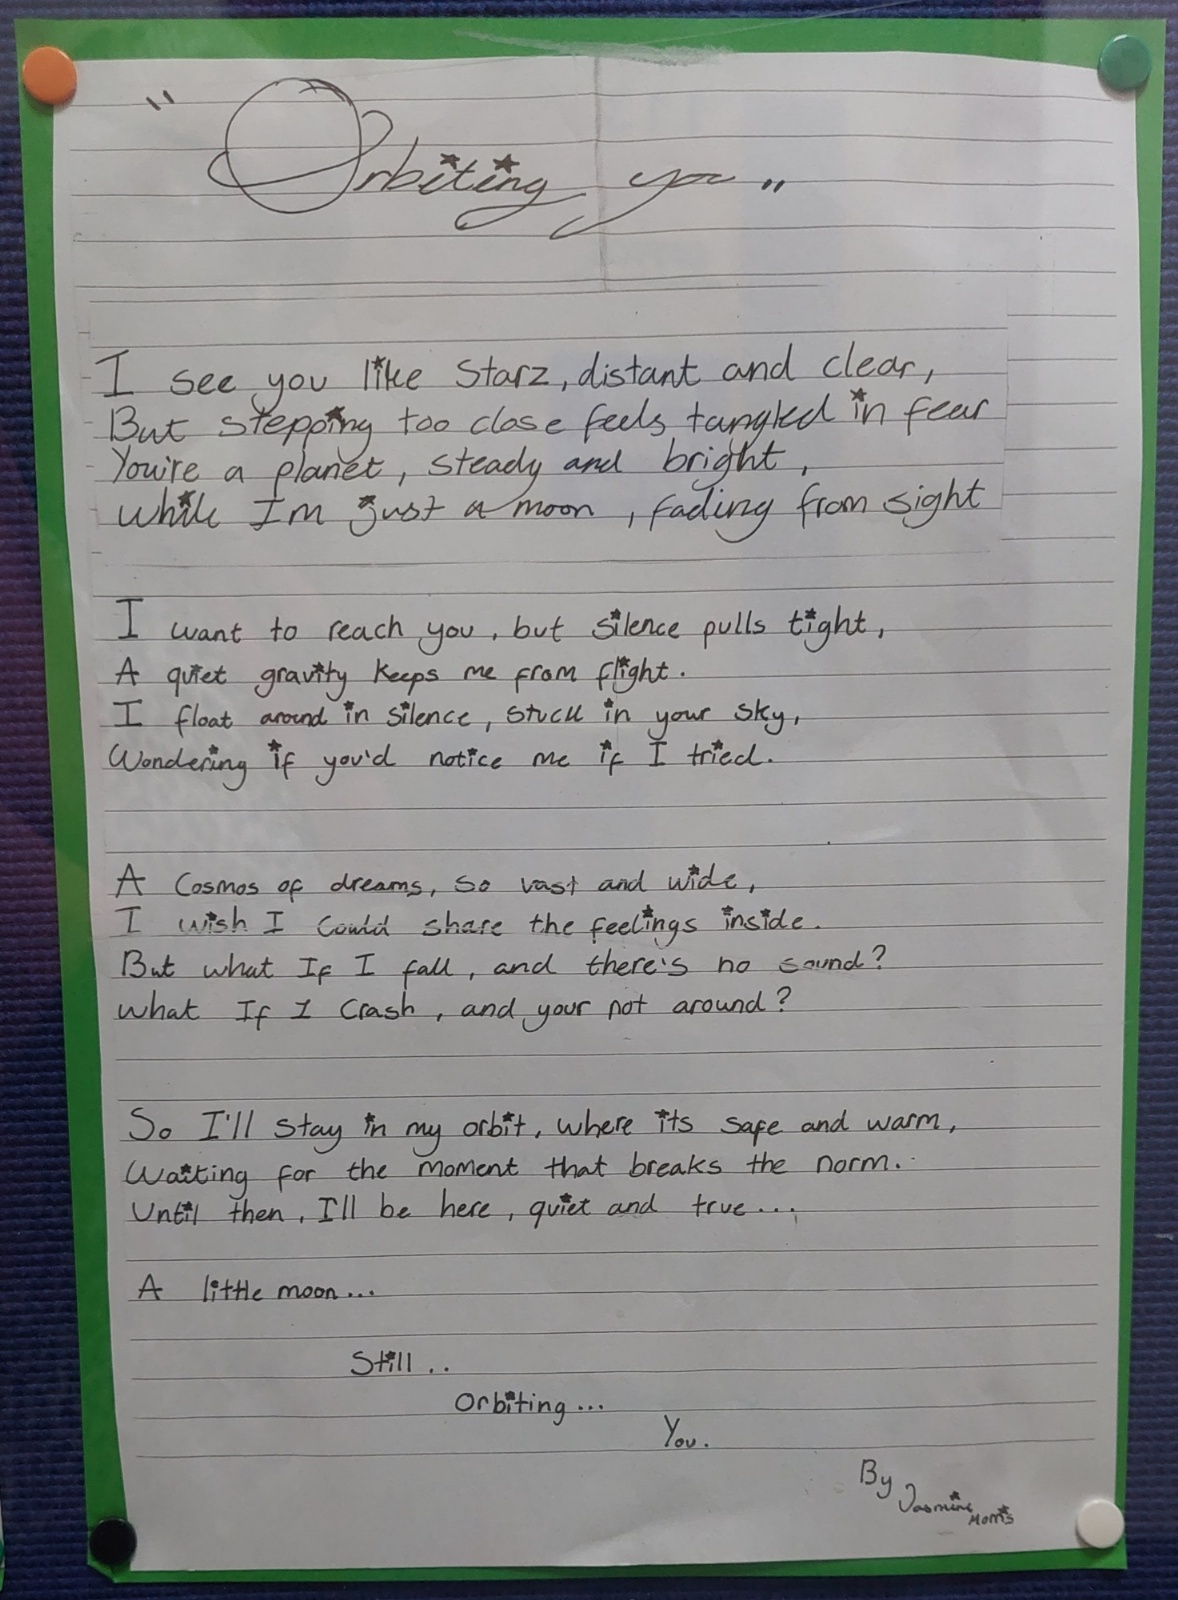 "Orbiting you"
I see you like Starz, distant and clear,
But stepping too close feels tangled in fear
You're a planet, steady and bright,
while I'm just a moon, fading from sight
I want to reach you, but silence pulls tight,
A quiet gravity keeps me from flight.
I float around in silence, stuck in your sky,
Wondering if you'd notice me if I tried.
A cosmos of dreams, so vast and wide,
I wish I could share the feelings inside.
But what If I fall, and there's no sound?
What If I crash, and your not around?
So I'll stay in my orbit, where its safe and warm,
Waiting for the moment that breaks the norm.
Until then, I'll be here, quiet and true...
A little moon...
Still..
Orbiting...
You.
By
Jasmine
Morris